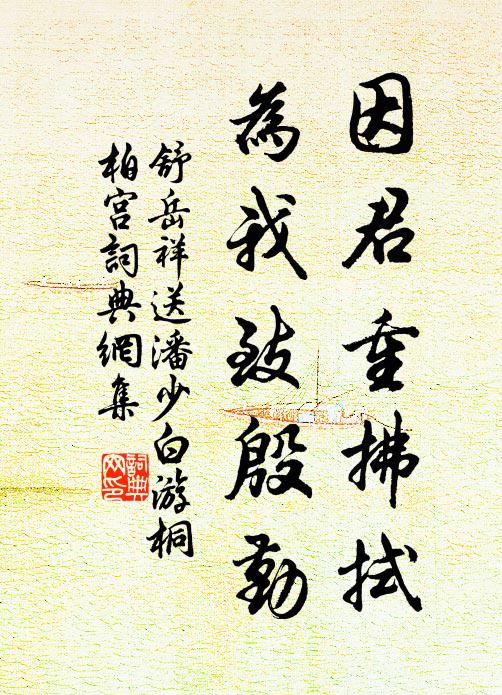 因君重拂拭
為我致殷勤
舒岳祥送潘少白游桐
柏宮詞典網集
詞典网印